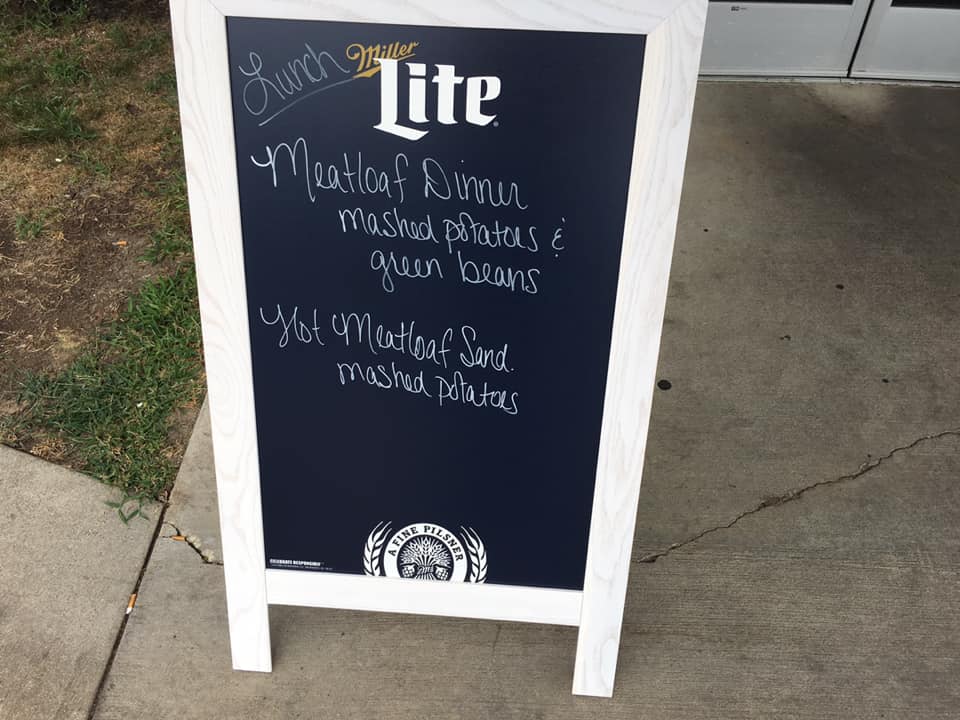 Lunch
Miller
Lite
Meatloaf Dinner
mashed potatoes &
green beans
Hot Meatloaf Sand.
mashed potatoes
A FINE PILSNER
CELEBRATE RESPONSIBLY